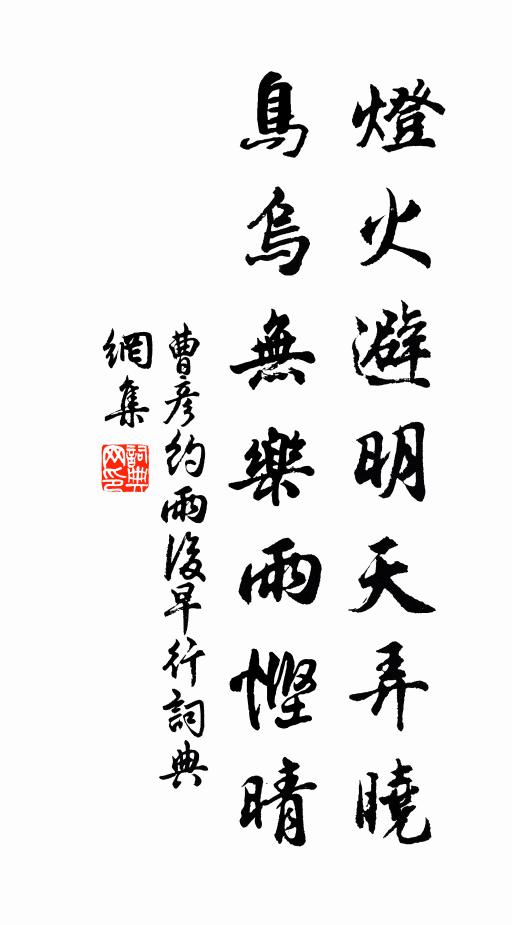 燈火避明天弄曉
烏烏無樂雨慳晴
曹彥約雨後早行詞典
網集
詞典
网印